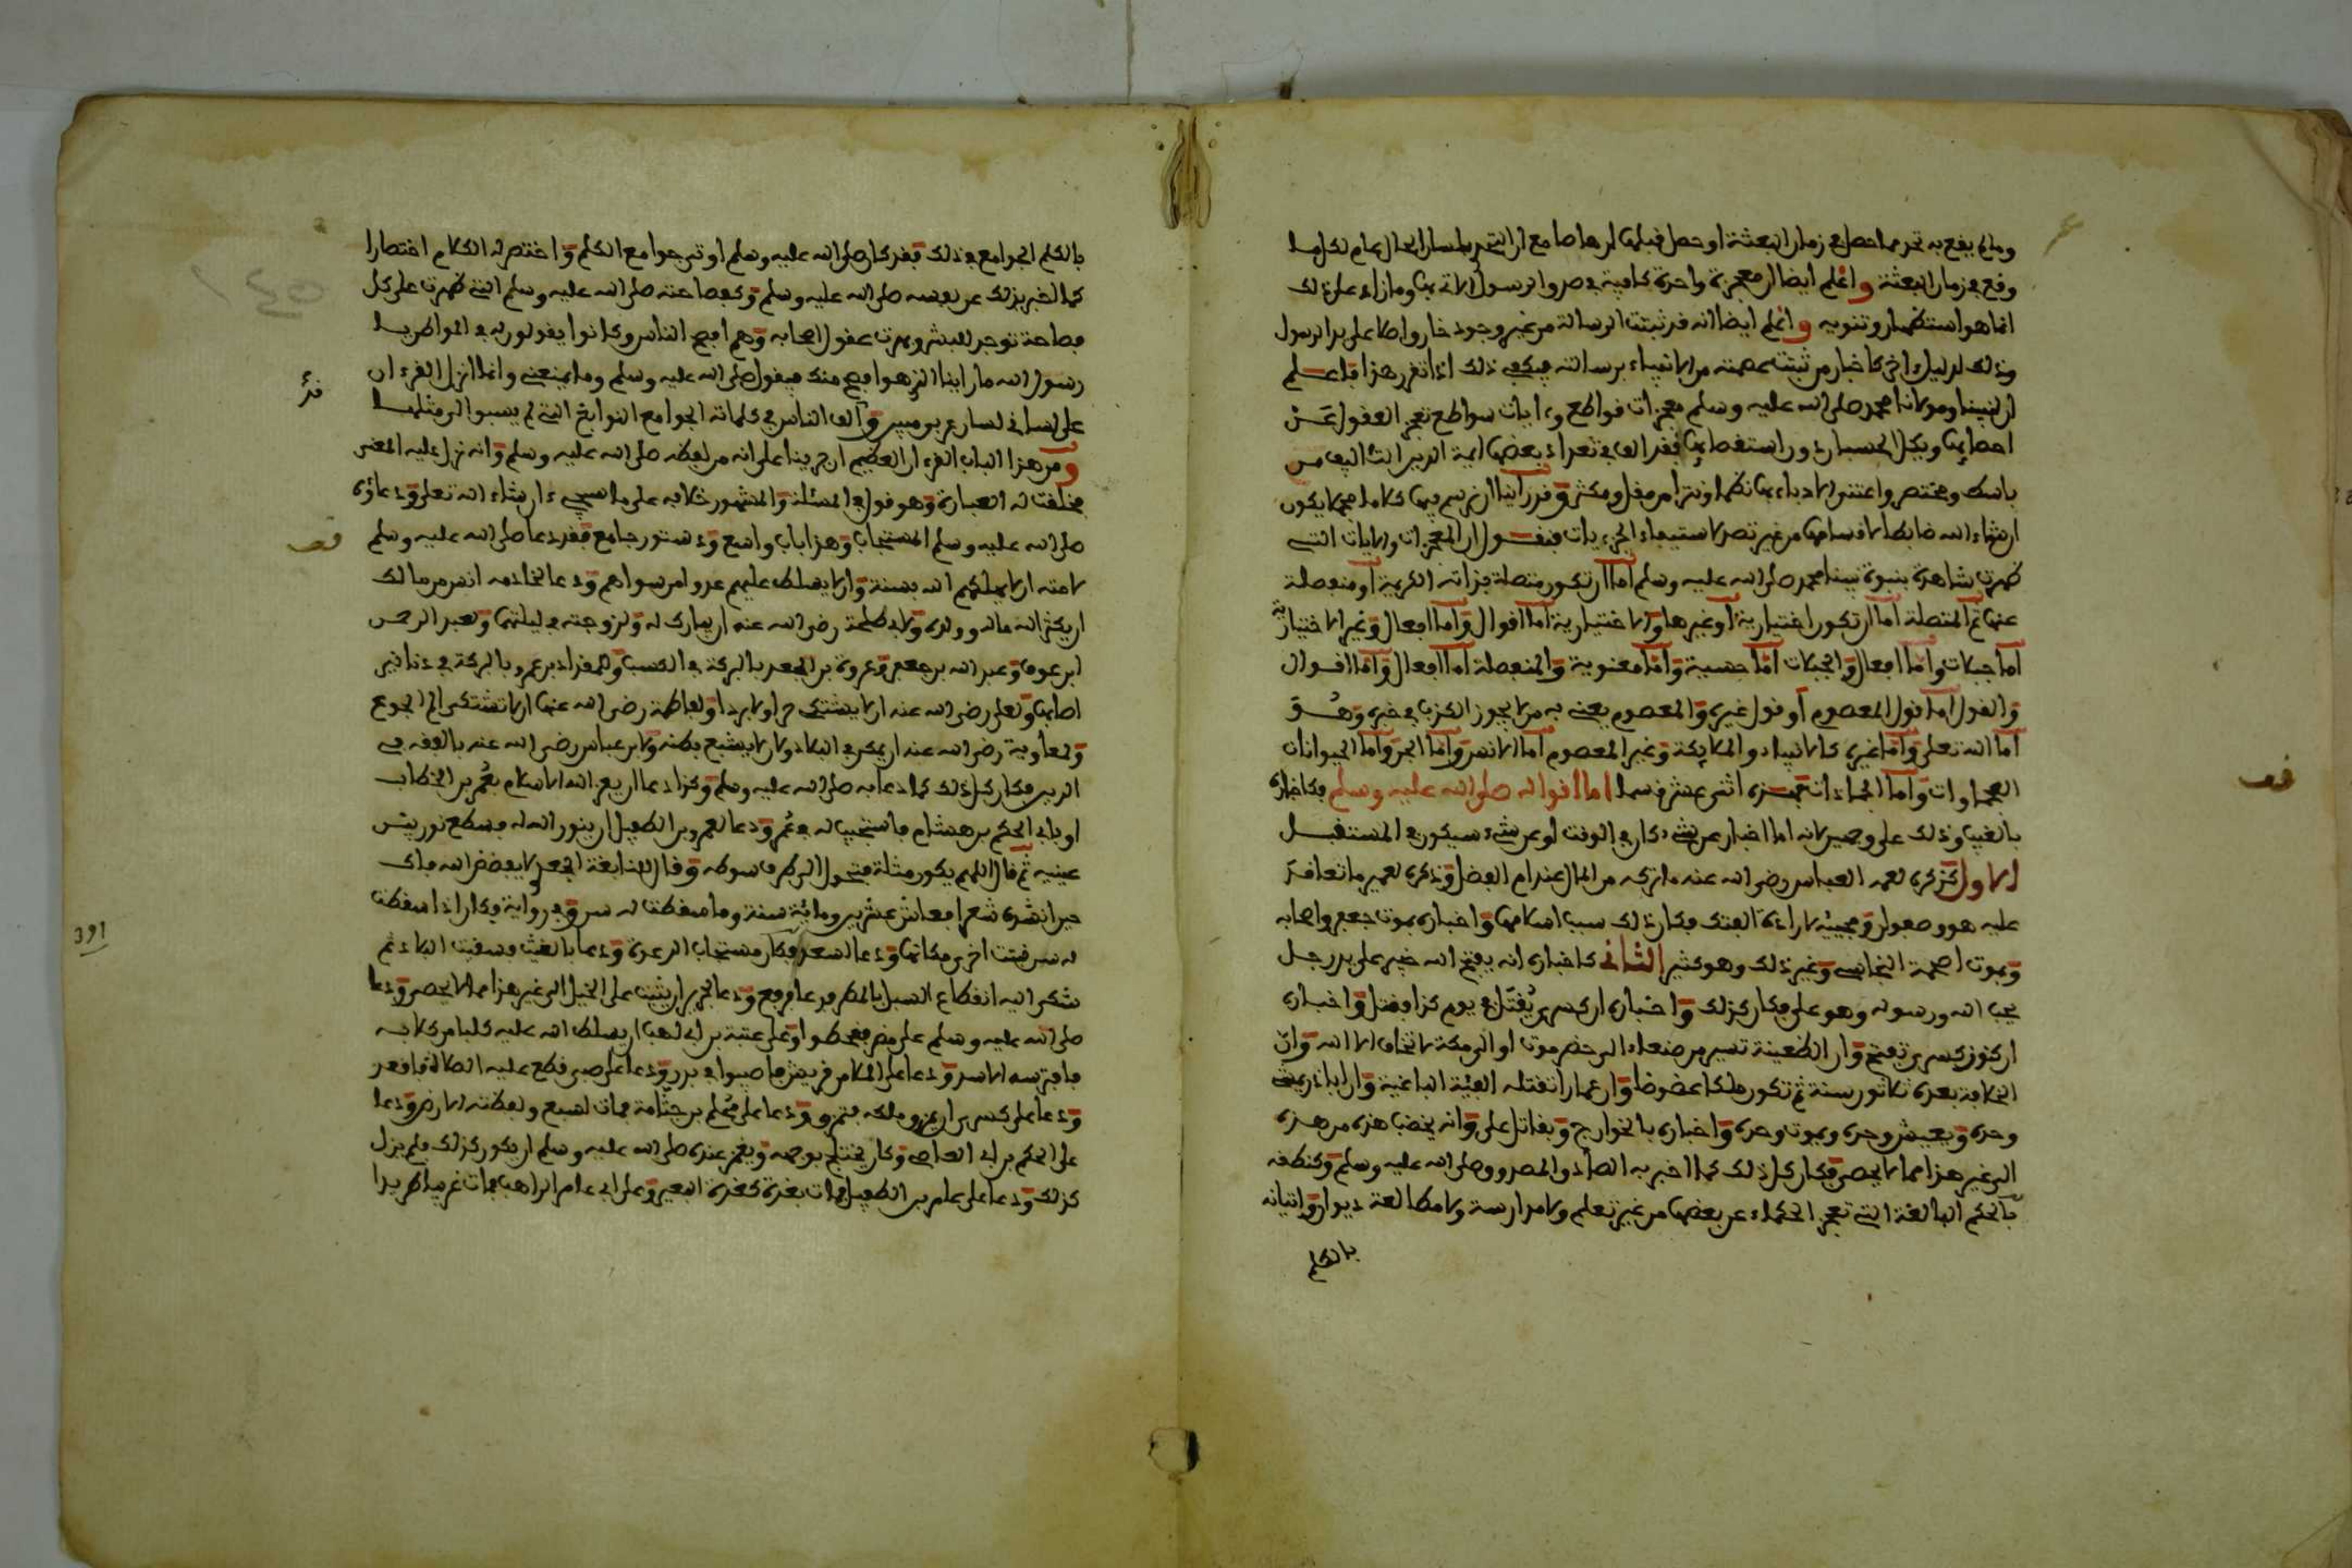 وما لم يقع به تحد مما حصل في زمان البعثة او حصل قبلها ارهاصا مع ان التحدي بلسان الحال عام لكل ما
وقع في زمان البعثة واعلم ايضا ان معجزة واحدة كافية في صدق الرسول الاتي بها وما زاد على ذلك
انما هو استظهار وتنويه واعلم ايضا انه قد ثبتت الرسالة من غير وجود خارق اصلا على يد الرسول
وذلك لدليل اخر كاخبار من ثبتت عصمته من الانبياء برسالته فيكفي ذلك اذا تقرر هذا فاعلم
ان لنبينا ومولانا محمد صلى الله عليه وسلم معجزات قواطع وءايات سواطع تعجز العقول عن
احصائها ويكل الحسبان دون استقصائها فقد الف في تعداد بعضها ايمة الدين التئاليف من
باسط ومختصر واعتنوا الادباء بها نظما ونثرا من مقل ومكثر وقد راينا ان نرسم فيها كلاما جمعا يكون
ان شاء الله ضابطا لاقسامها من غير قصد لاستيفاء الجزءيات فنقول ان المعجزات والايات التي
ظهرت شاهدة بنبوة نبينا محمد صلى الله عليه وسلم اما ان تكون متصلة بذاته الكريمة او منفصلة
عنها ثم المتصلة اما ان تكون اختيارية او غيرها والاختيارية اما اقوال واما افعال وغير الاختيارية
اما جبلات واما افعال والجبلات اما حسية واما معنوية والمنفصلة اما افعال واما اقوال
والقول اما قول المعصوم او قول غيره والمعصوم يعني به من لا يجوز الكذب في خبره وهو
اما الله تعلى واما غيره كالانبياء والملايكة وغير المعصوم اما الانس واما الجن واما الحيوانات
العجماوات واما الجمادات فهذه اثنى عشر قسما اما اقواله صلى الله عليه وسلم فكاخباره
بالغيب وذلك على وجهين لانه اما اخبار عن شيء كان في الوقت او عن شيء سيكون في المستقبل
الاول كذكره لعمه العباس رضي الله عنه ما تركه من المال عند ام الفضل وذكره لعمير ما تعاقد
عليه هو وصفوان ومجيئه لارادة الفتك فكان ذلك سبب اسلامهما واخباره بموت جعفر واصحابه
وبموت اصحمة النجاشي وغير ذلك وهو كثير الثاني كاخباره انه يفتح الله خيبر على يد رجل
يحب الله ورسوله وهو علي فكان كذلك واخباره ان كسرى يقتل في يوم كذا فقتل واخباره
ان كنوز كسرى تفتح وان الظعينة تسير من صنعاء الى حضرموت او الى مكة لا تخاف الا الله وان
الخلافة بعده ثلاثون سنة ثم تكون ملكا عضوضا وان عمارا تقتله الفئة الباغية وان ابا ذر يمشي
وحده ويعيش وحده ويموت وحده واخباره بالخوارج وبقاتل علي وانه يخضب هذه من هذه
الى غير هذا مما لا يحصر فكان كل ذلك كما اخبر به الصادق المصدوق صلى الله عليه وسلم وكنطقه
بالحكم البالغة التي تعجز الحكماء عن بعضها من غير تعلم ولا مدارسة ولا مطالعة ديوان واتيانه
بالكلم
قف
بالكلم الجوامع في ذلك فقد كان صلى الله عليه وسلم اوتي جوامع الكلم واختصر له الكلام اختصارا
كما اخبر بذلك عن نفسه صلى الله عليه وسلم وكفصاحته صلى الله عليه وسلم التي ظهرت على كل
فصاحة توجد للبشر وبهرت عقول اصحابه وهم افصح الناس وكانوا يقولون له في المواطن يا
رسول الله ما راينا الذي هو افصح منك فيقول صلى الله عليه وسلم وما يمنعني وانما انزل القرءان
على لساني لسان عربي مبين والف الناس في كلماته الجوامع النوابغ التي لم يسبق الى مثلها
ومن هذا الباب القرءان العظيم ان جرينا على انه من لفظه صلى الله عليه وسلم وانه نزل عليه المعنى
فخلقت له العبارة وهو قول في المسئلة والمشهور خلافه على ما سيجيء ان شاء الله تعلى ودعاؤه
صلى الله عليه وسلم المستجاب وهذا باب واسع ودستور جامع فقد دعا صلى الله عليه وسلم
لامته ان لا يهلكهم الله بسنة وان لا يسلط عليهم عدوا من سواهم ودعا لخادمه انس بن مالك
ان يكثر الله ماله وولده ولابي طلحة رضي الله عنه ان يبارك له ولزوجته في ليلتهما ولعبد الرحمن
ابن عوف وعبد الله بن جعفر وعروة بن الجعد بالبركة في الكسب وللمقداد بن عمرو بالبركة في دنانير
اصابها ولعلي رضي الله عنه ان لا يشتكي حرا ولا بردا ولفاطمة رضي الله عنها ان لا تشتكي الم الجوع
ولمعاوية رضي الله عنه ان يمكن في البلاد وكان لا يشبع بطنه ولابن عباس رضي الله عنه بالفقه في
الدين فكان كل ذلك كما دعا به صلى الله عليه وسلم وكذا دعا ان يعز الله الاسلام بعمر بن الخطاب
او بابي الحكم بن هشام فاستجيب له في عمر ودعا لعمرو بن الطفيل ان ينور الله له فسطع نور بين
عينيه ثم قال اللهم يكون مثلة فتحول الى طرف سوطه وقال للنابغة الجعدي لا يفضض الله فاك
حين انشده شعرا فعاش عشرين ومائة سنة وما سقطت له سن وفي رواية فكان اذا سقطت
له سن نبتت اخرى مكانها ودعا لسعد فكان مستجاب الدعوة ودعا بالغيث فسقيت البلاد ثم
شكى اليه انقطاع السبل بالمطر فدعا فرفع ودعا لجرير ان يثبت على الخيل الى غير هذا مما لا يحصر ودعا
صلى الله عليه وسلم على مضر فقحطوا وعلى عتبة بن ابي لهب ان يسلط الله عليه كلبا من كلابه
فافترسه الاسد ودعا على الملا من قريش فاصيبوا في بدر ودعا على صبي قطع عليه الصلاة فاقعد
ودعا على كسرى ان يمزق ملكه فتمزق ودعا على محلم بن جثامة فمات لسبع ولفظته الارض ودعا
على الحكم بن ابي العاصي وكان يختلج بوجهه ويغمز عنده صلى الله عليه وسلم ان يكون كذلك فلم يزل
كذلك ودعا على عامر بن الطفيل فمات بغدة كغدة البعير وعلى ابي عامر الراهب فمات غريبا طريدا
قف